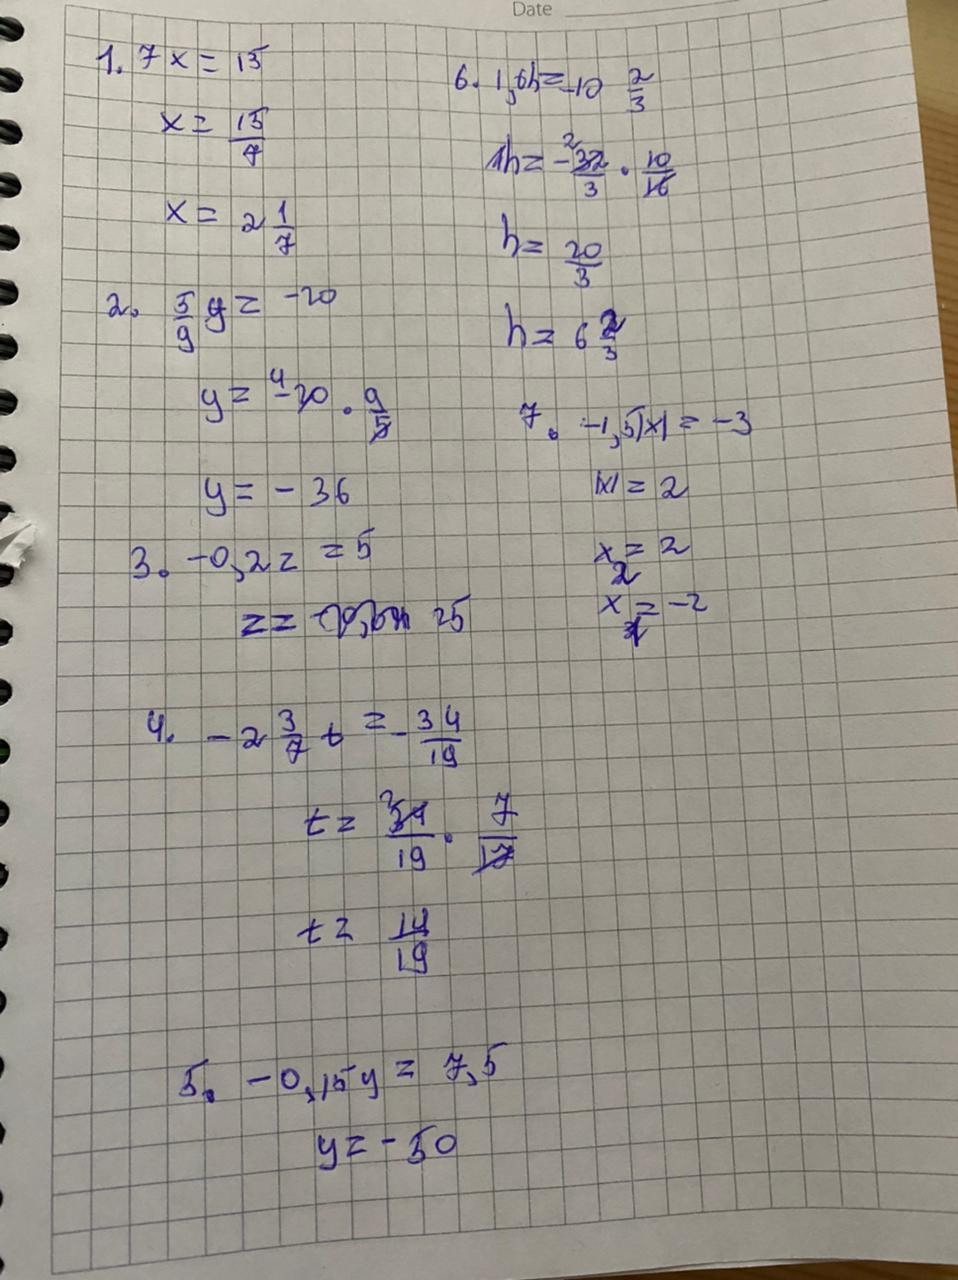 Date
1. 7x = 15
x = 15/7
x = 2 1/7
2. 5/9 y = -20
y = -20 4 · 9/5
y = - 36
3. -0,2z = 5
z = 25
4. - 2 3/7 t = - 34/19
t = 34 2/19 · 7/17
t = 14/19
5. -0,15y = 7,5
y = - 50
6. 1,6h = -10 2/3
1h = - 32 2/3 · 10/16
h = 20/3
h = 6 2/3
7. -1,5|x| = -3
|x| = 2
x₂ = 2
x₁ = -2